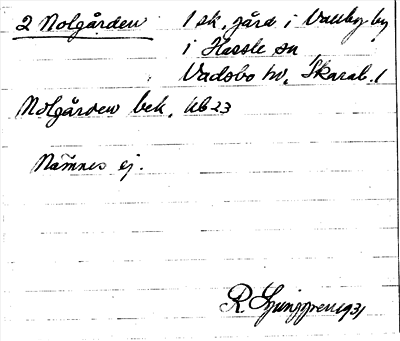 2 Nolgården 1 sk. gård i Vallby by
i Hassle sn
Vadsbo hd, Skarab. l
Nolgården bek. Ub 23
Nämnes ej.
R. Ljunggren 1931